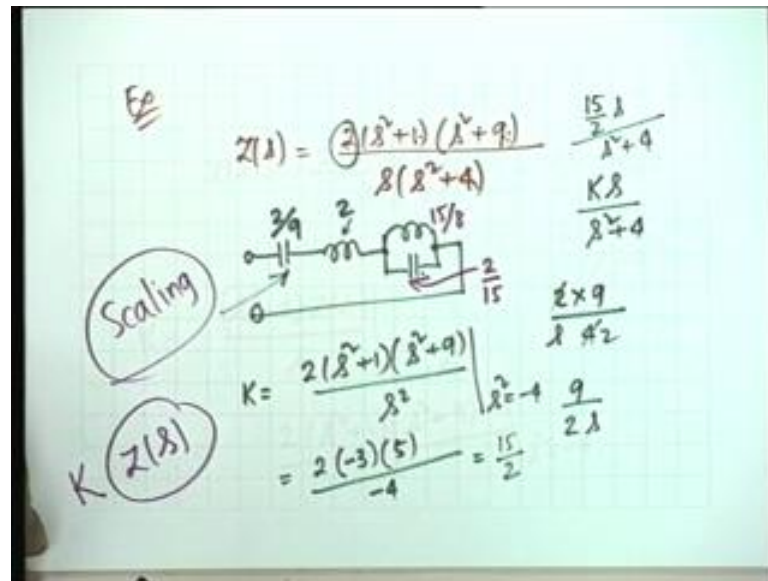 Ex
Z(s) = 2(s²+1)(s²+9) / s(s²+4)
15/2 s / s²+4
Ks / s²+4
2/9
2
15/8
2/15
Scaling
2×9 / s 4 2
K = 2(s²+1)(s²+9) / s² | s²=-4
9 / 2s
= 2(-3)(5) / -4 = 15/2
K Z(s)